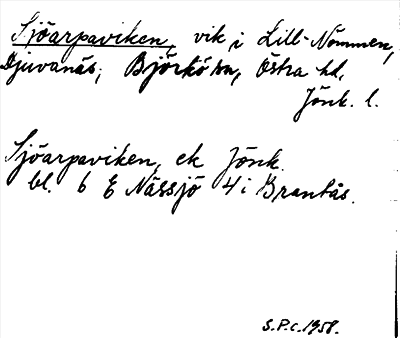 Sjöarpaviken, vik i Lill-Nömmen,
Djuvanäs, Björkö sn, Östra hd,
Jönk. l.
Sjöarpaviken, ek Jönk.
bl. 6 E Nässjö 4 i Brantås.
S.P.C. 1958.